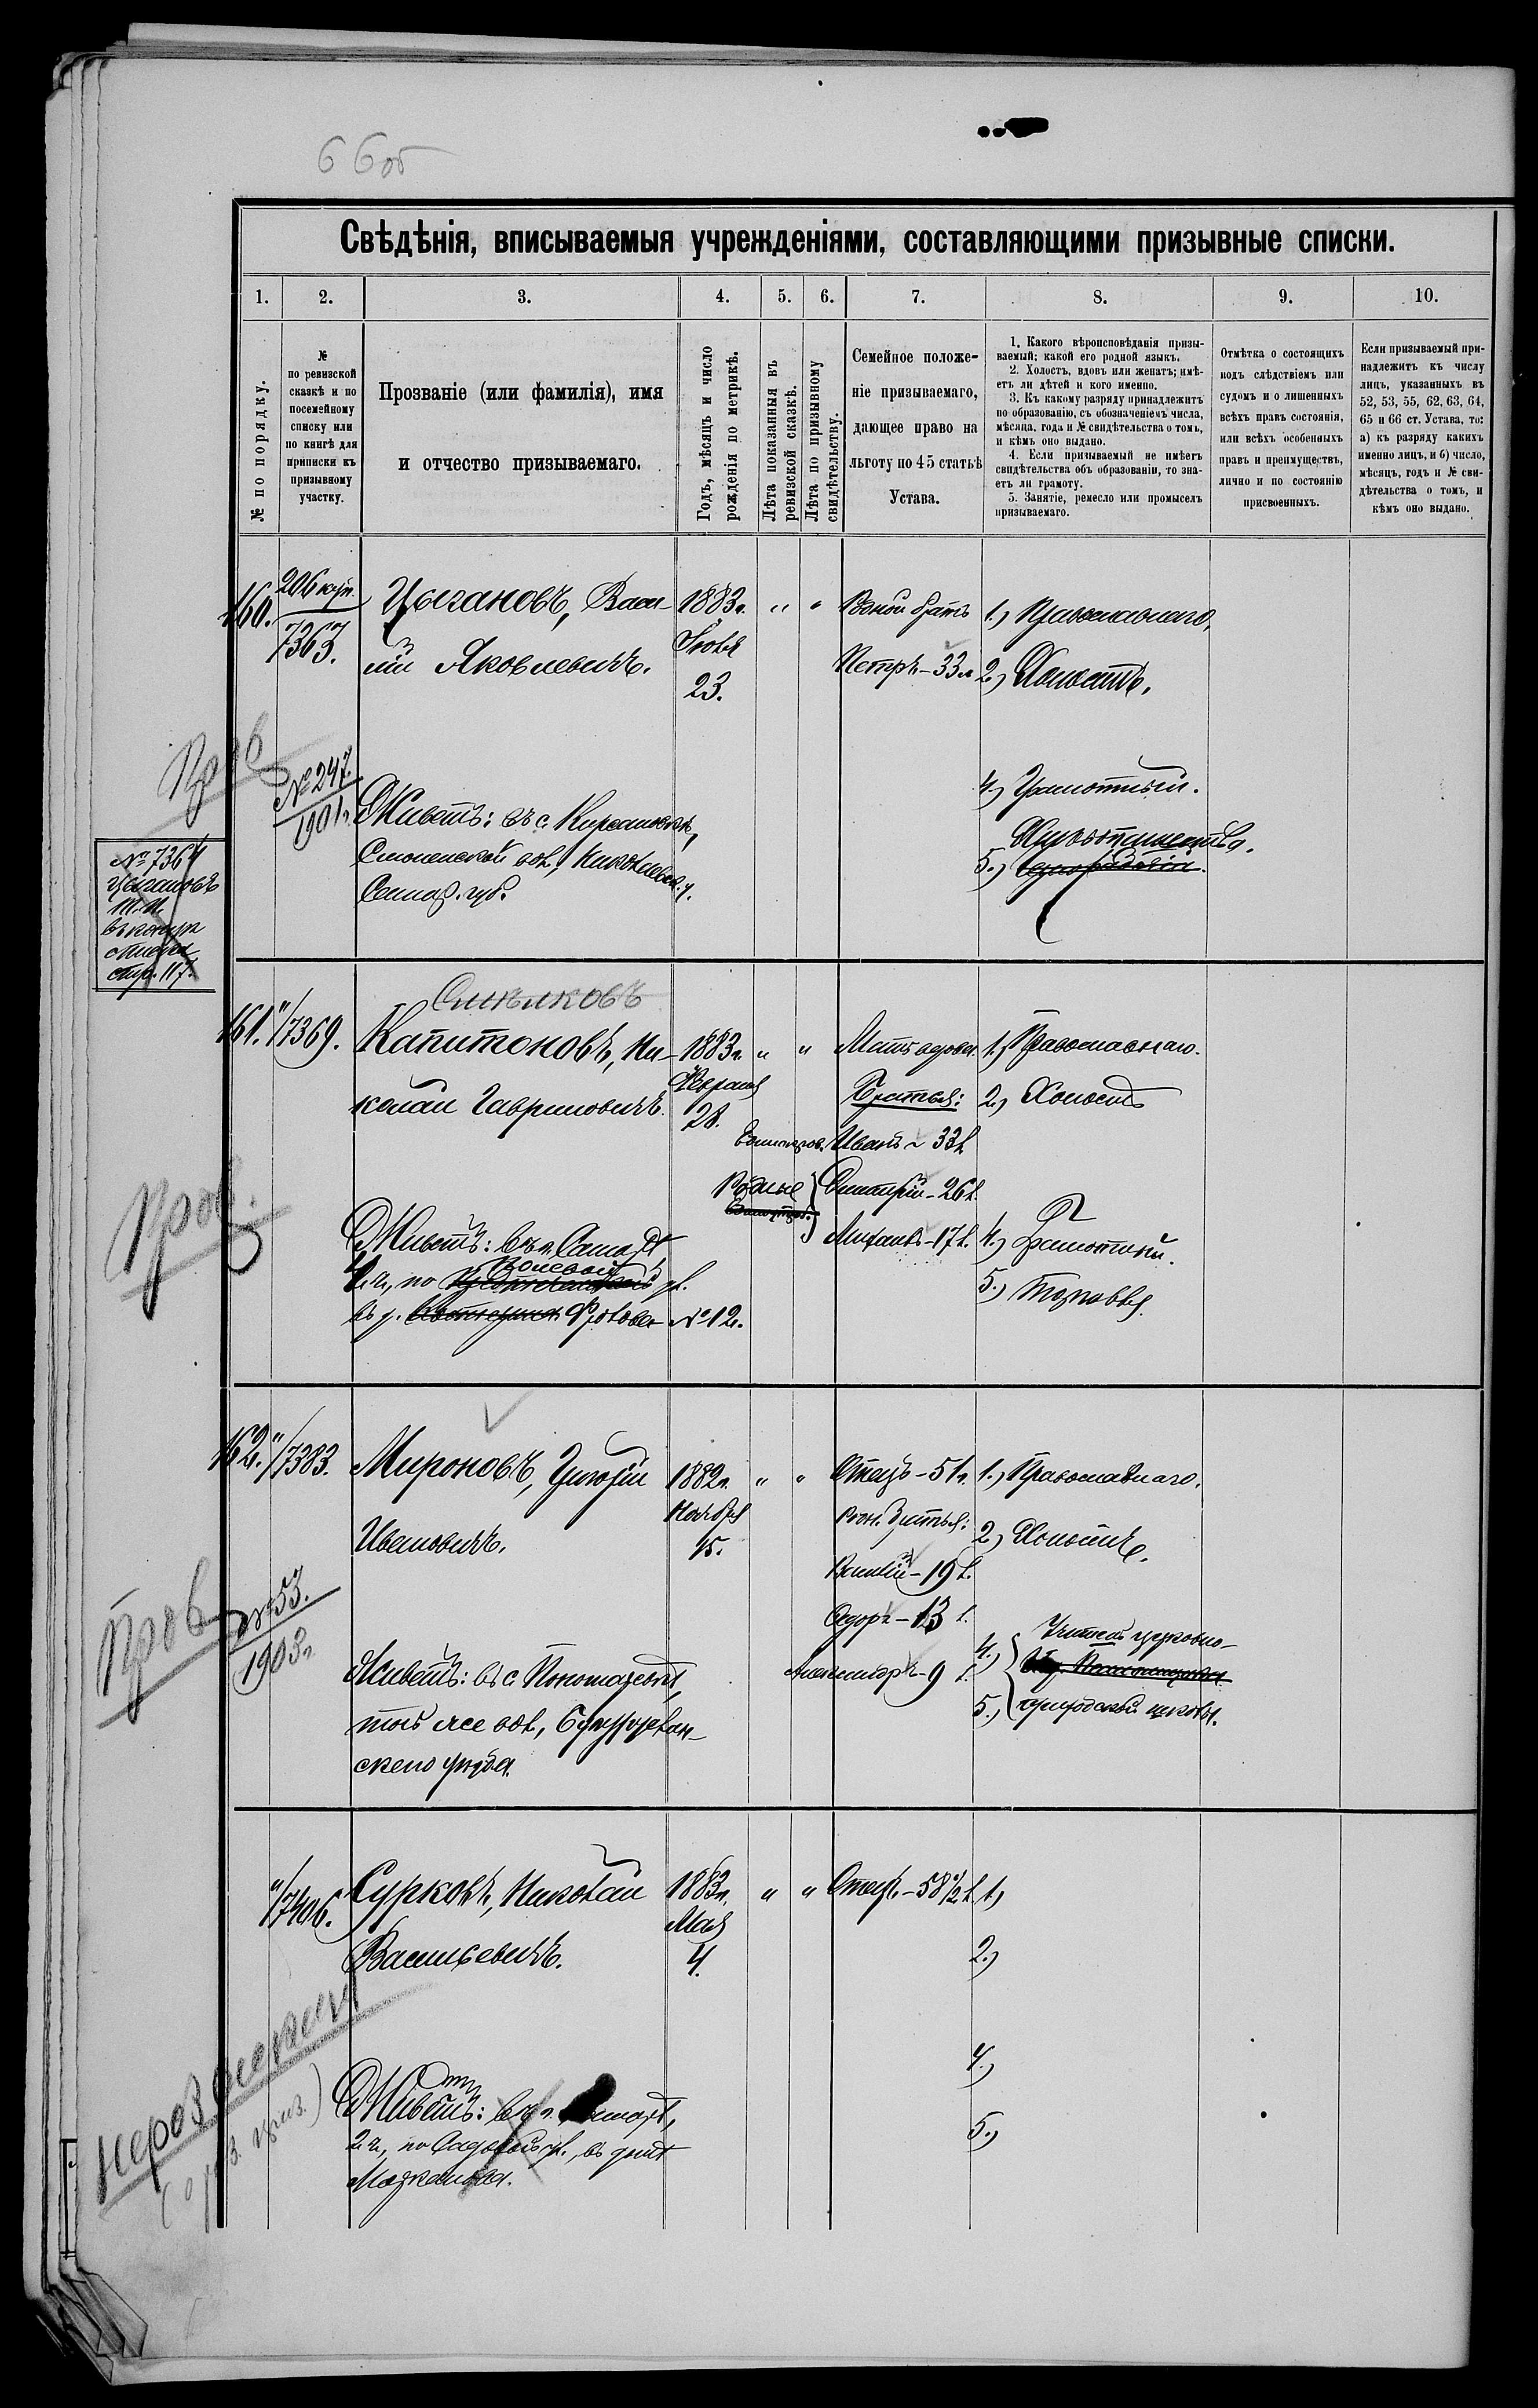 6 6об
Свѣдѣнія, вписываемыя учрежденіями, составляющими призывные списки.
1. 2. 3. 4. 5. 6. 7. 8. 9. 10.
№ по порядку.
№
по ревизской
сказкѣ и по
посемейному
списку или
по книгѣ для
приписки къ
призывному
участку.
Прозваніе (или фамилія), имя
и отчество призываемаго.
Годъ, мѣсяцъ и число
рожденія по метрикѣ.
Лѣта показанныя въ
ревизской сказкѣ.
Лѣта по призывному
свидѣтельству.
Семейное положе-
ніе призываемаго,
дающее право на
льготу по 45 статьѣ
Устава.
1. Какого вѣроисповѣданія призы-
ваемый; какой его родной языкъ.
2. Холостъ, вдовъ или женатъ; имѣ-
етъ ли дѣтей и кого именно.
3. Къ какому разряду принадлежитъ
по образованію, съ обозначеніемъ числа,
мѣсяца, года и № свидѣтельства о томъ,
и кѣмъ оно выдано.
4. Если призываемый не имѣетъ
свидѣтельства объ образованіи, то зна-
етъ ли грамоту.
5. Занятіе, ремесло или промыселъ
призываемаго.
Отмѣтка о состоящихъ
подъ слѣдствіемъ или
судомъ и о лишенныхъ
всѣхъ правъ состоянія,
или всѣхъ особенныхъ
правъ и преимуществъ,
лично и по состоянію
присвоенныхъ.
Если призываемый при-
надлежитъ къ числу
лицъ, указанныхъ въ
52, 53, 55, 62, 63, 64,
65 и 66 ст. Устава, то:
а) къ разряду какихъ
именно лицъ, и б) число,
мѣсяцъ, годъ и № сви-
дѣтельства о томъ, и
кѣмъ оно выдано.
160.
206 куп.
7363.
Цыгановъ, Васи-
лій Яковлевичъ.
1883г.
Іюля
23.
" "
Родной братъ
Петръ - 33 л
1.) Православнаго,
2.) Холостъ.
4.) Грамотный.
Хлѣбопашество.
5.)
Пров
№ 247.
1901г.
Живетъ: въ с.
вол., Николаевск. у.
Самар. губ.
№ 7364
Цыгановъ
стр. 117.
161. "/7369.
Синельковъ
Капитоновъ, Ни-
колай Гавриловичъ.
1883г.
Февраля
28.
" "
Мать вдова.
Братья:
Иванъ - 33 л.
Родные
Дмитрій - 26 л.
Михаилъ - 17 л.
1.) Православнаго.
2.) Холостъ
4.) Грамотный.
5.) Торговля.
Пров.
Живетъ: въ г. Самарѣ,
по Полевой ул.
въ д. Фролова № 12.
162. "/7383.
Мироновъ, Григорій
Ивановичъ.
1882г.
Ноября
15.
" "
Отецъ - 51 г.
Род. братья:
Василій - 19 л.
Ѳедоръ - 13 л.
Александръ - 9 л.
1.) Православнаго.
2.) Холостъ.
4.)
5.)
Учитель церковно-
приходской школы.
Пров
№ 53.
1903г.
Живетъ: въ с. Пономаревкѣ,
той же вол., Бугуруслан-
скаго уѣзда.
"/7406.
Сурковъ, Николай
Васильевичъ.
1883г.
Мая
4.
" "
Отецъ - 58 1/2 л.
1.)
2.)
4.)
5.)
неразыскан
Живетъ: въ г. Самарѣ,
2 ч., по Садовой ул., въ домѣ